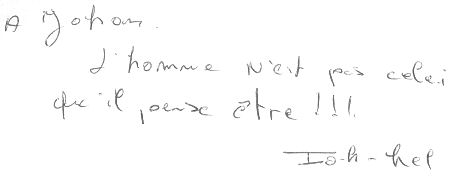 A Yohan.
L'homme N'est pas celui
qu'il pense être !!!